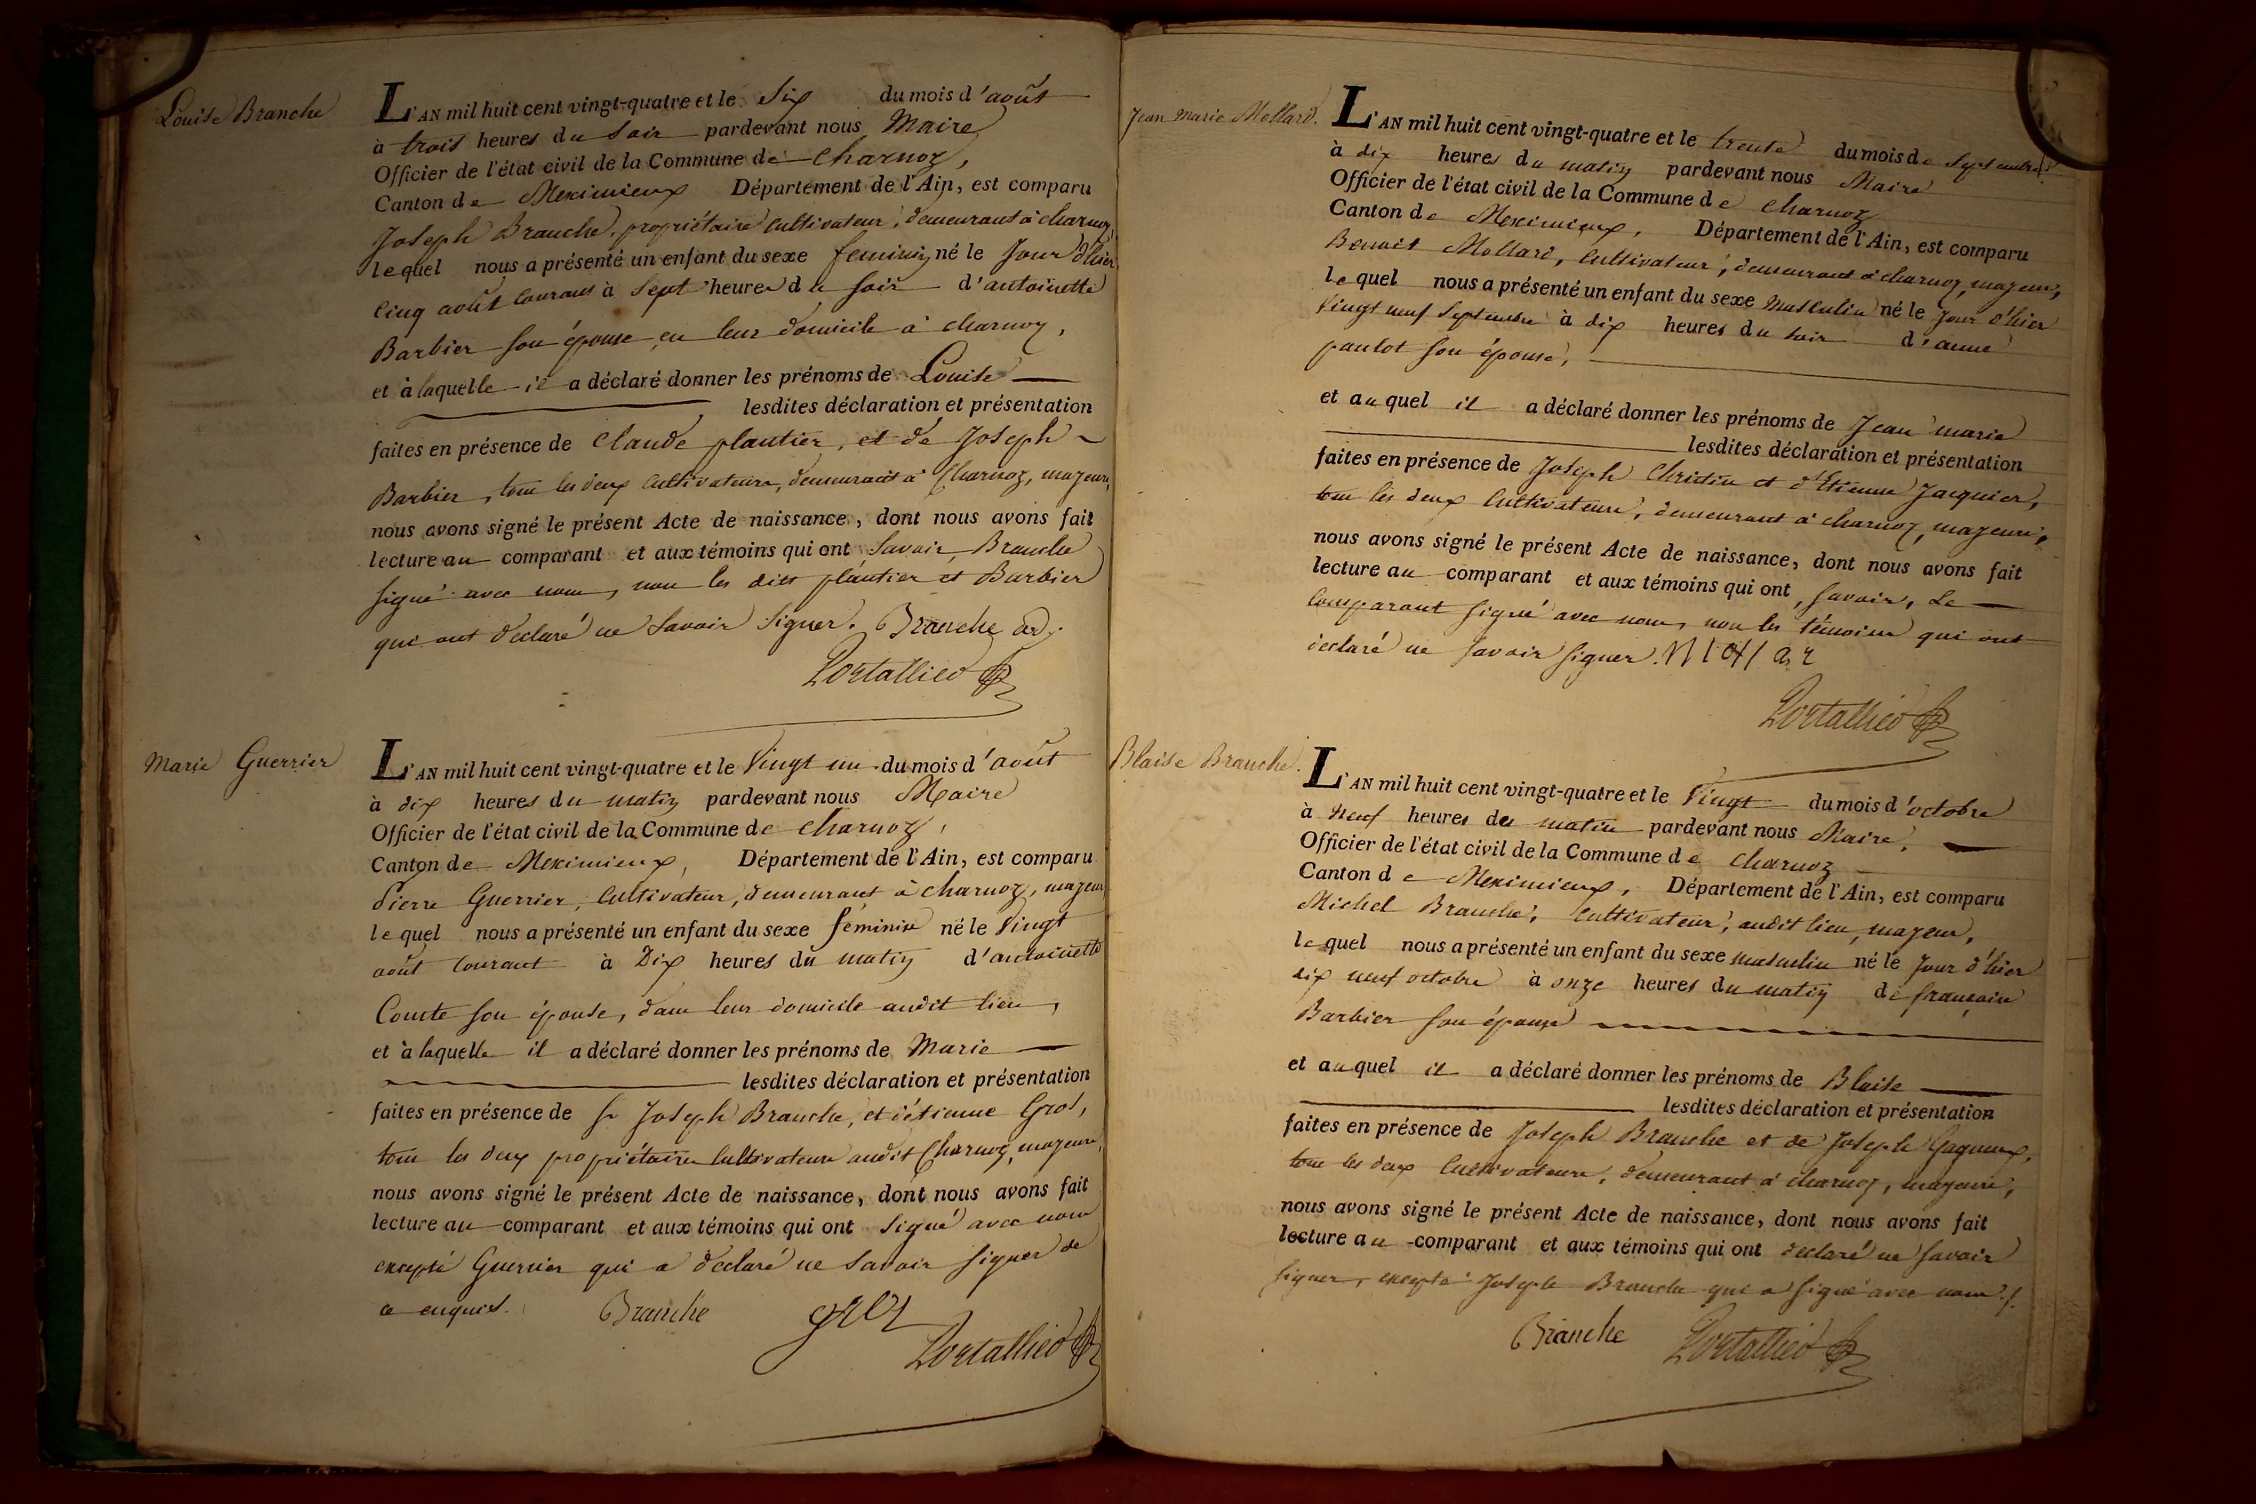 Louise Branche
L'AN mil huit cent vingt-quatre et le Six du mois d'août
à trois heures du Soir pardevant nous Maire
Officier de l'état civil de la Commune de Charnoz,
Canton de Meximieux Département de l'Ain, est comparu
Joseph Branche, propriétaire Cultivateur, demeurant à charnoz,
lequel nous a présenté un enfant du sexe feminin né le Jour d'hier
Cinq août Courant à Sept heures du Soir d'antoinette
Barbier son épouse en leur domicile à charnoz,
et à laquelle il a déclaré donner les prénoms de Louise
lesdites déclaration et présentation
faites en présence de Claude plantier, et de Joseph
Barbier, tous les deux Cultivateurs, demeurant à Charnoz, majeurs,
nous avons signé le présent Acte de naissance, dont nous avons fait
lecture au comparant et aux témoins qui ont Savoir, Branche
signé avec nous, non les dits plantier et Barbier
qui ont declaré ne Savoir Signer. Branche
Portallier
Marie Guerrier
L'AN mil huit cent vingt-quatre et le Vingt un du mois d'août
à dix heures du matin pardevant nous Maire
Officier de l'état civil de la Commune de Charnoz,
Canton de Meximieux, Département de l'Ain, est comparu
Pierre Guerrier, Cultivateur, demeurant à charnoz, majeur
lequel nous a présenté un enfant du sexe féminin né le Vingt
août Courant à Dix heures du matin d'antoinette
Comte son épouse, dans leur domicile audit lieu,
et à laquelle il a déclaré donner les prénoms de Marie
lesdites déclaration et présentation
faites en présence de Sr Joseph Branche, et d'étienne Gros,
tous les deux propriétaires Cultivateurs audit Charnoz, majeurs,
nous avons signé le présent Acte de naissance, dont nous avons fait
lecture au comparant et aux témoins qui ont Signé avec nous
excepté Guerrier qui a déclaré ne Savoir signer de
ce enquis. Branche gros
Portallier
Jean Marie Mollard.
L'AN mil huit cent vingt-quatre et le trente du mois de Septembre
à dix heures du matin pardevant nous Maire
Officier de l'état civil de la Commune de Charnoz
Canton de Meximieux, Département de l'Ain, est comparu
Benoit Mollard, Cultivateur, demeurant à charnoz, majeur,
lequel nous a présenté un enfant du sexe Masculin né le Jour d'hier
Vingt neuf Septembre à dix heures du soir d'anne
paulot son épouse,
et auquel il a déclaré donner les prénoms de Jean marie
lesdites déclaration et présentation
faites en présence de Joseph Christin et d'Etienne Jacquier,
tous les deux Cultivateurs, demeurant à charnoz, majeurs,
nous avons signé le présent Acte de naissance, dont nous avons fait
lecture au comparant et aux témoins qui ont, Savoir, Le
Comparant signé avec nous, non les témoins qui ont
déclaré ne Savoir signer.
Portallier
Blaise Branche.
L'AN mil huit cent vingt-quatre et le Vingt du mois d'octobre
à Neuf heures du matin pardevant nous Maire,
Officier de l'état civil de la Commune de Charnoz
Canton de Meximieux, Département de l'Ain, est comparu
Michel Branche, Cultivateur, audit lieu, majeur,
lequel nous a présenté un enfant du sexe masculin né le Jour d'hier
dix neuf octobre à onze heures du matin de françoise
Barbier son épouse
et auquel il a déclaré donner les prénoms de Blaise
lesdites déclaration et présentation
faites en présence de Joseph Branche et de Joseph Gagneux,
tous les deux Cultivateurs, demeurant à charnoz, majeurs,
nous avons signé le présent Acte de naissance, dont nous avons fait
lecture au comparant et aux témoins qui ont declaré ne Savoir
signer, excepté Joseph Branche qui a signé avec nous
Branche Portallier